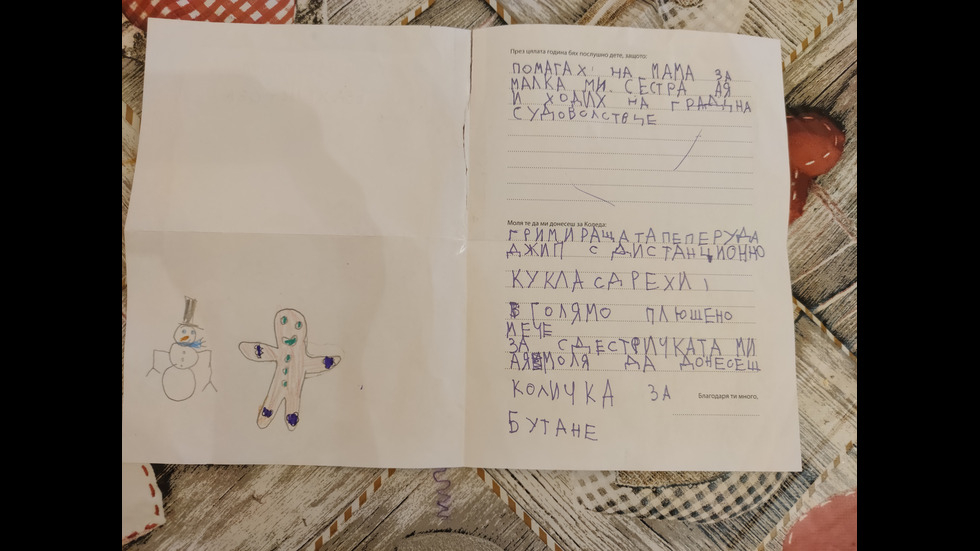 През цялата година бях послушно дете, защото:
ПОМАГАХ НА МАМА ЗА
МАЛКА МИ СЕСТРА АЯ
И ХОДИХ НА ГРАДИНА
С УДОВОЛСТВЦЕ
Моля те да ми донесеш за Коледа:
ГРИМИРАЩАТА ПЕПЕРУДА
ДЖИП С ДИСТАНЦИОННО
КУКЛА
ГОЛЯМО ПЛЮШЕНО
МЕЧЕ
ЗА МИ
АЯ МОЛЯ ДА ДОНЕСЕШ
КОЛИЧКА ЗА
Благодаря ти много,
БУТАНЕ